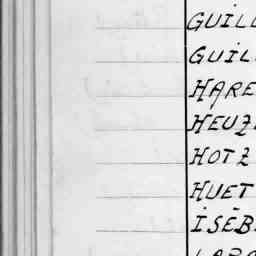 GUILL
GUIL
HARE
HEUZ
HOTZ
HUET
ISEB